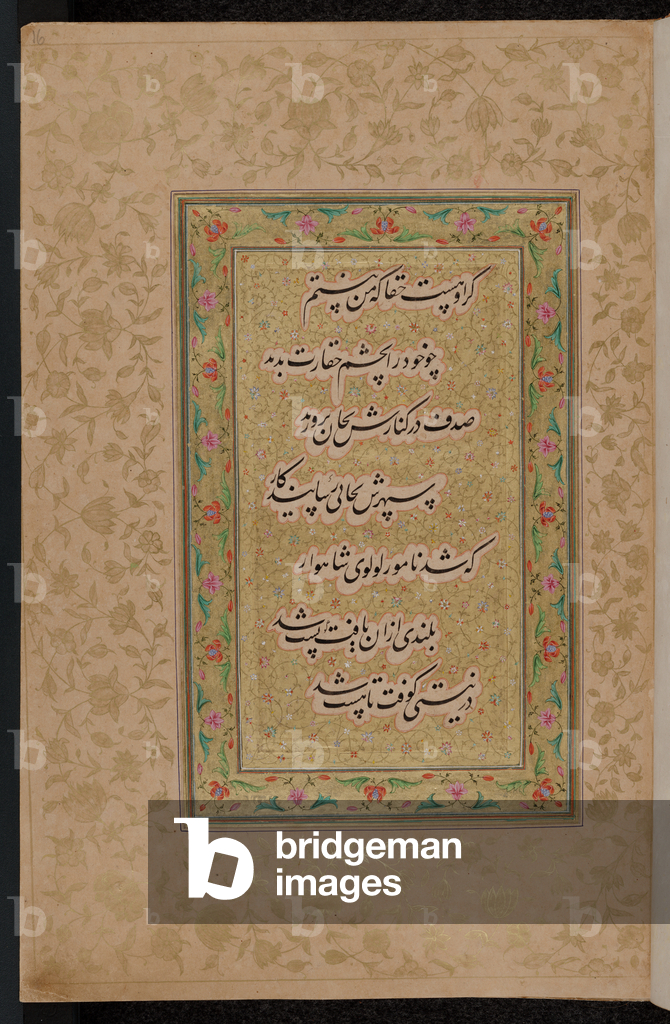 16
کر او هست حقا که من نیستم
چو خود را بچشم حقارت بدید
صدف در کنارش بجان پرورید
سپهرش بجائی رسانید کار
که شد نامور لولوی شاهوار
بلندی ازان یافت کو پست شد
در نیستی کوفت تا هست شد
b
bridgeman
images